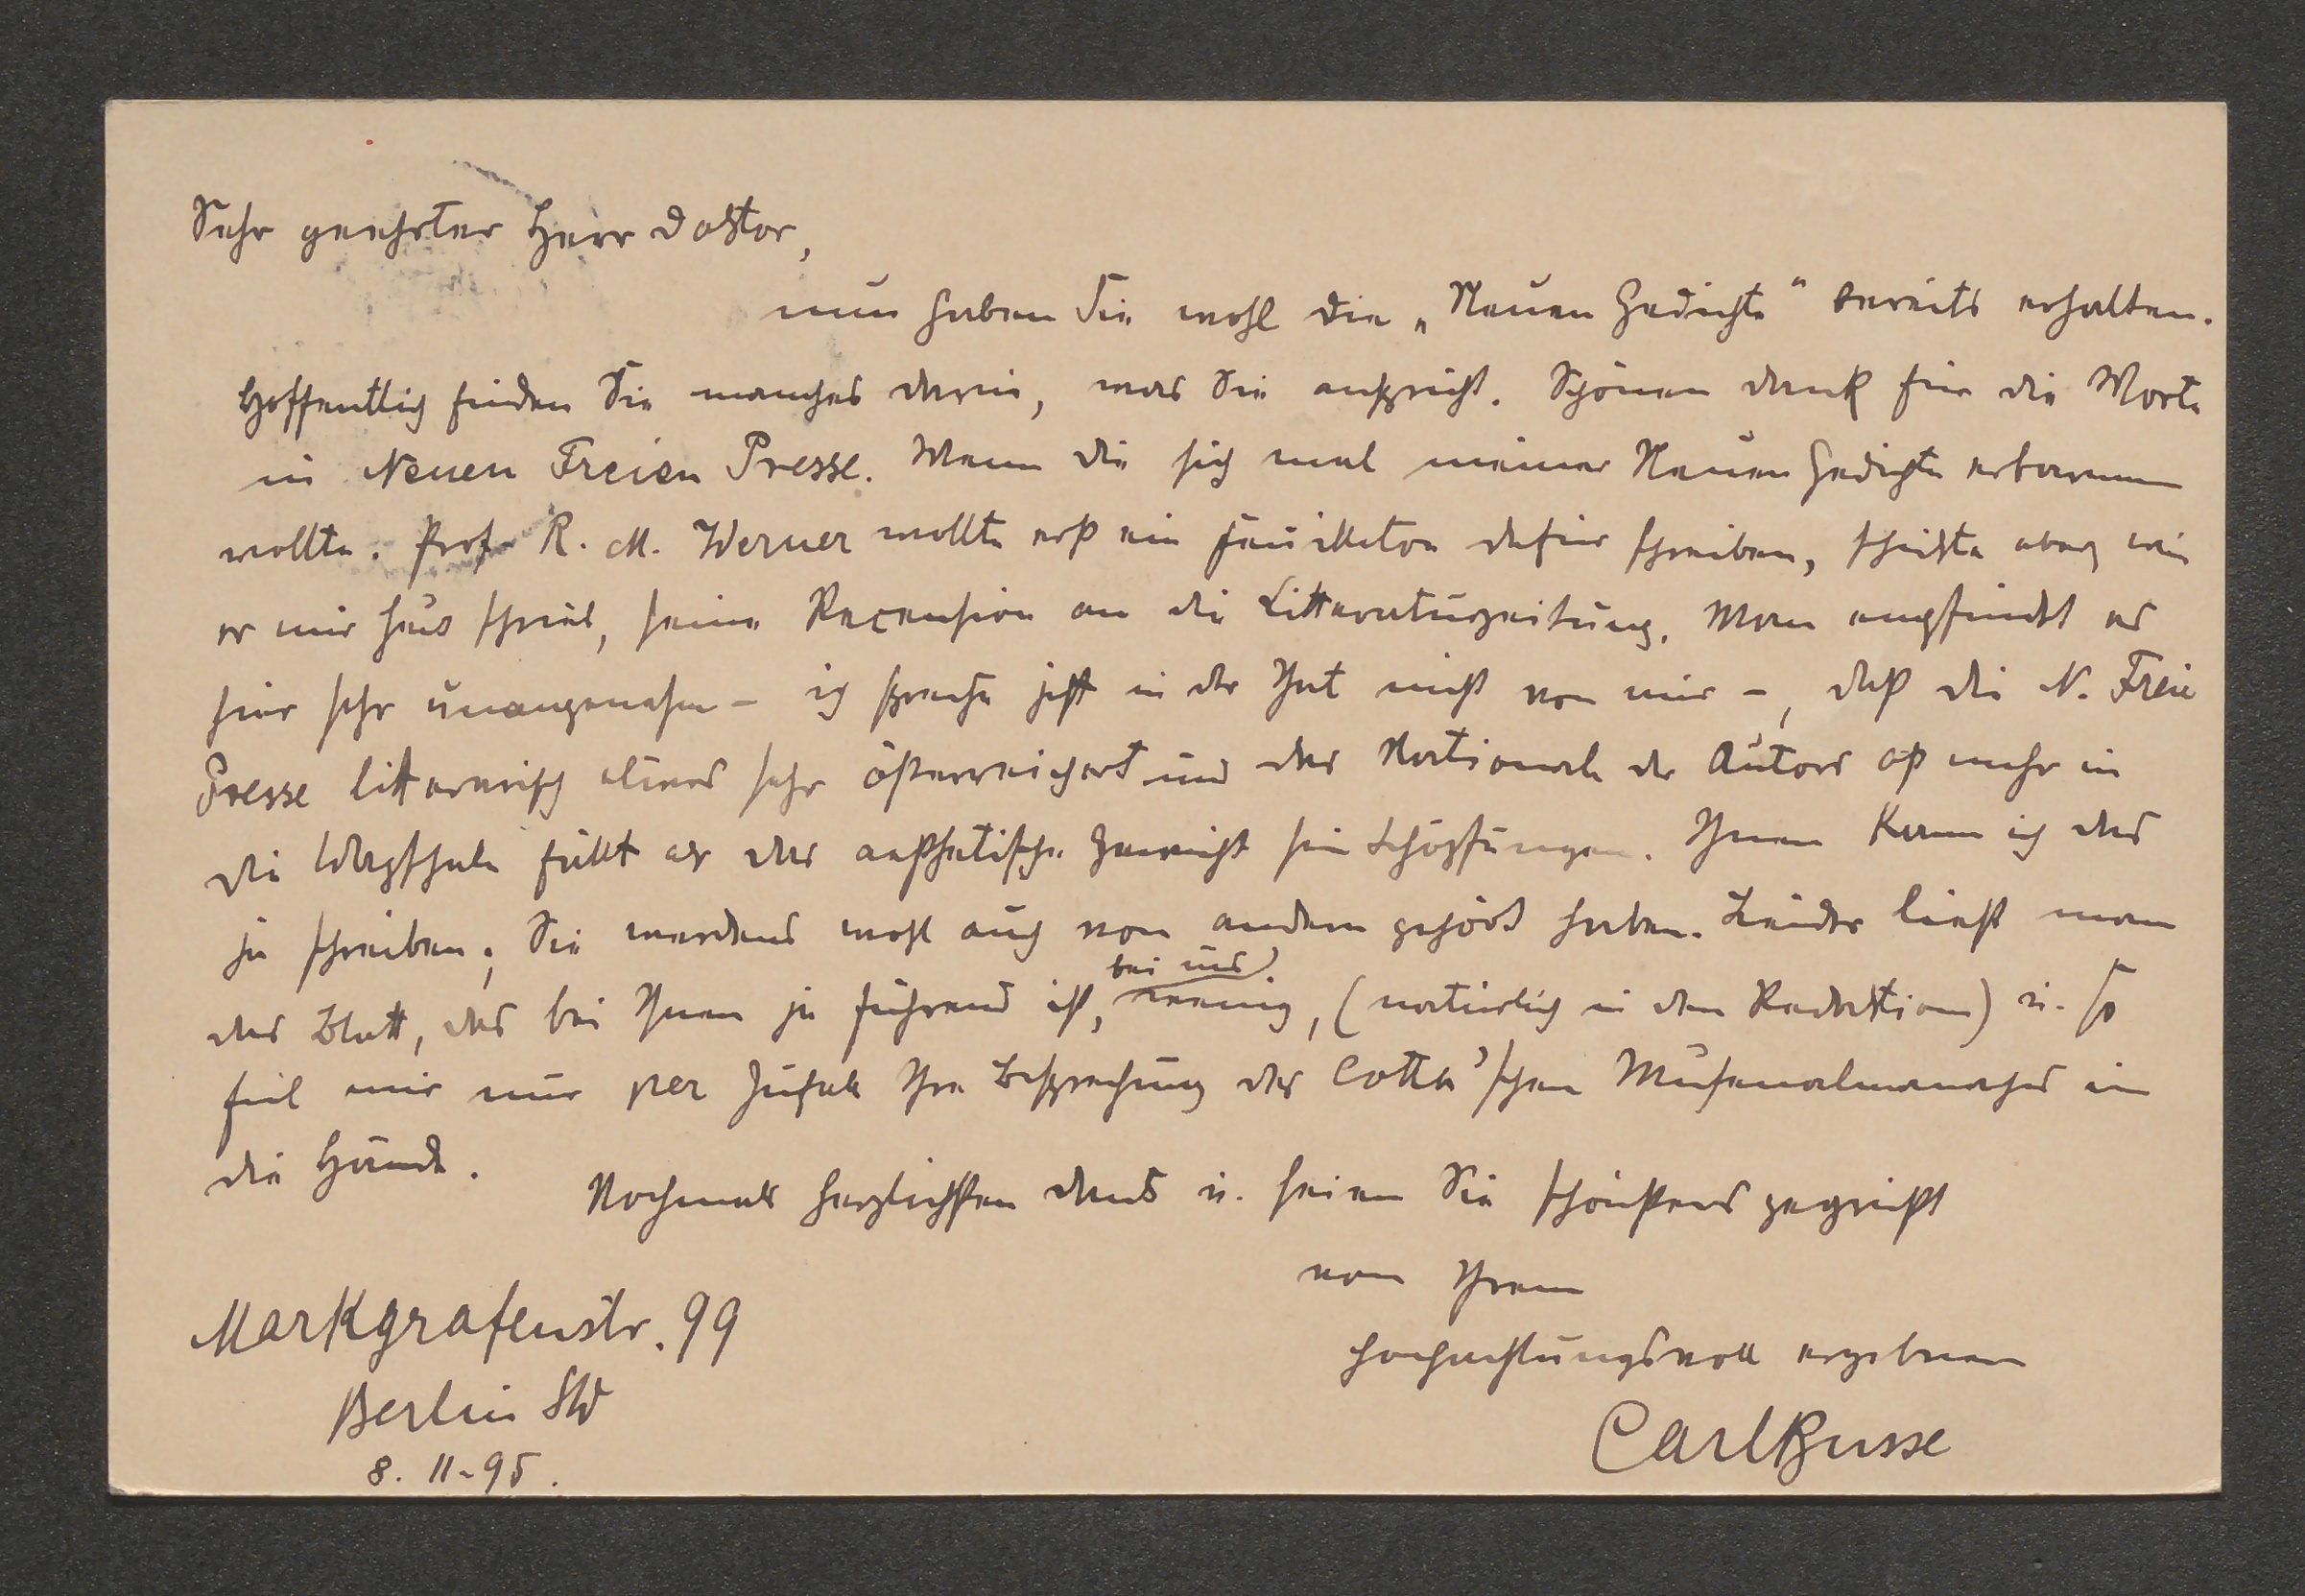 Sehr geehrter Herr Doktor,
nun haben Sie wohl die „Neuen Gedichte“ bereits erhalten.
Hoffentlich finden Sie manches darin, was Sie anspricht. Schönen Dank für die Worte
in Neuen Freien Presse. Wenn die sich mal meiner Neuen Gedichte erbarmen
wollte. Prof. R. M. Werner wollte erst ein Feuilleton dafür schreiben, schickte aber, wie
er mir schrieb, seine Recension an die Litteraturzeitung. Man empfindet es
hier sehr unangenehm – ich spreche jetzt in der That nicht von mir –, daß die N. Freie
Presse litterarisch allzu sehr österreichert und das Nationale der Autors oft mehr in
die Wagschale fällt als das aesthetische Gewicht sein Schöpfungen. Ihnen kann ich das
ja schreiben; Sie werdens wohl auch von andern gehört haben. Leider liest man
das Blatt, das bei Ihnen ja führend ist, bei uns wenig, (natürlich in den Redaktionen) u. so
fiel mir nur per Zufall Ihre Besprechung des Cotta'schen Musenalmanachs in
die Hände.
Nochmals herzlichsten Dank u. seien Sie schönstens gegrüßt
von Ihrem
hochachtungsvoll ergebenen
Carl Busse
Markgrafenstr. 99
Berlin SW
8. 11. 95.